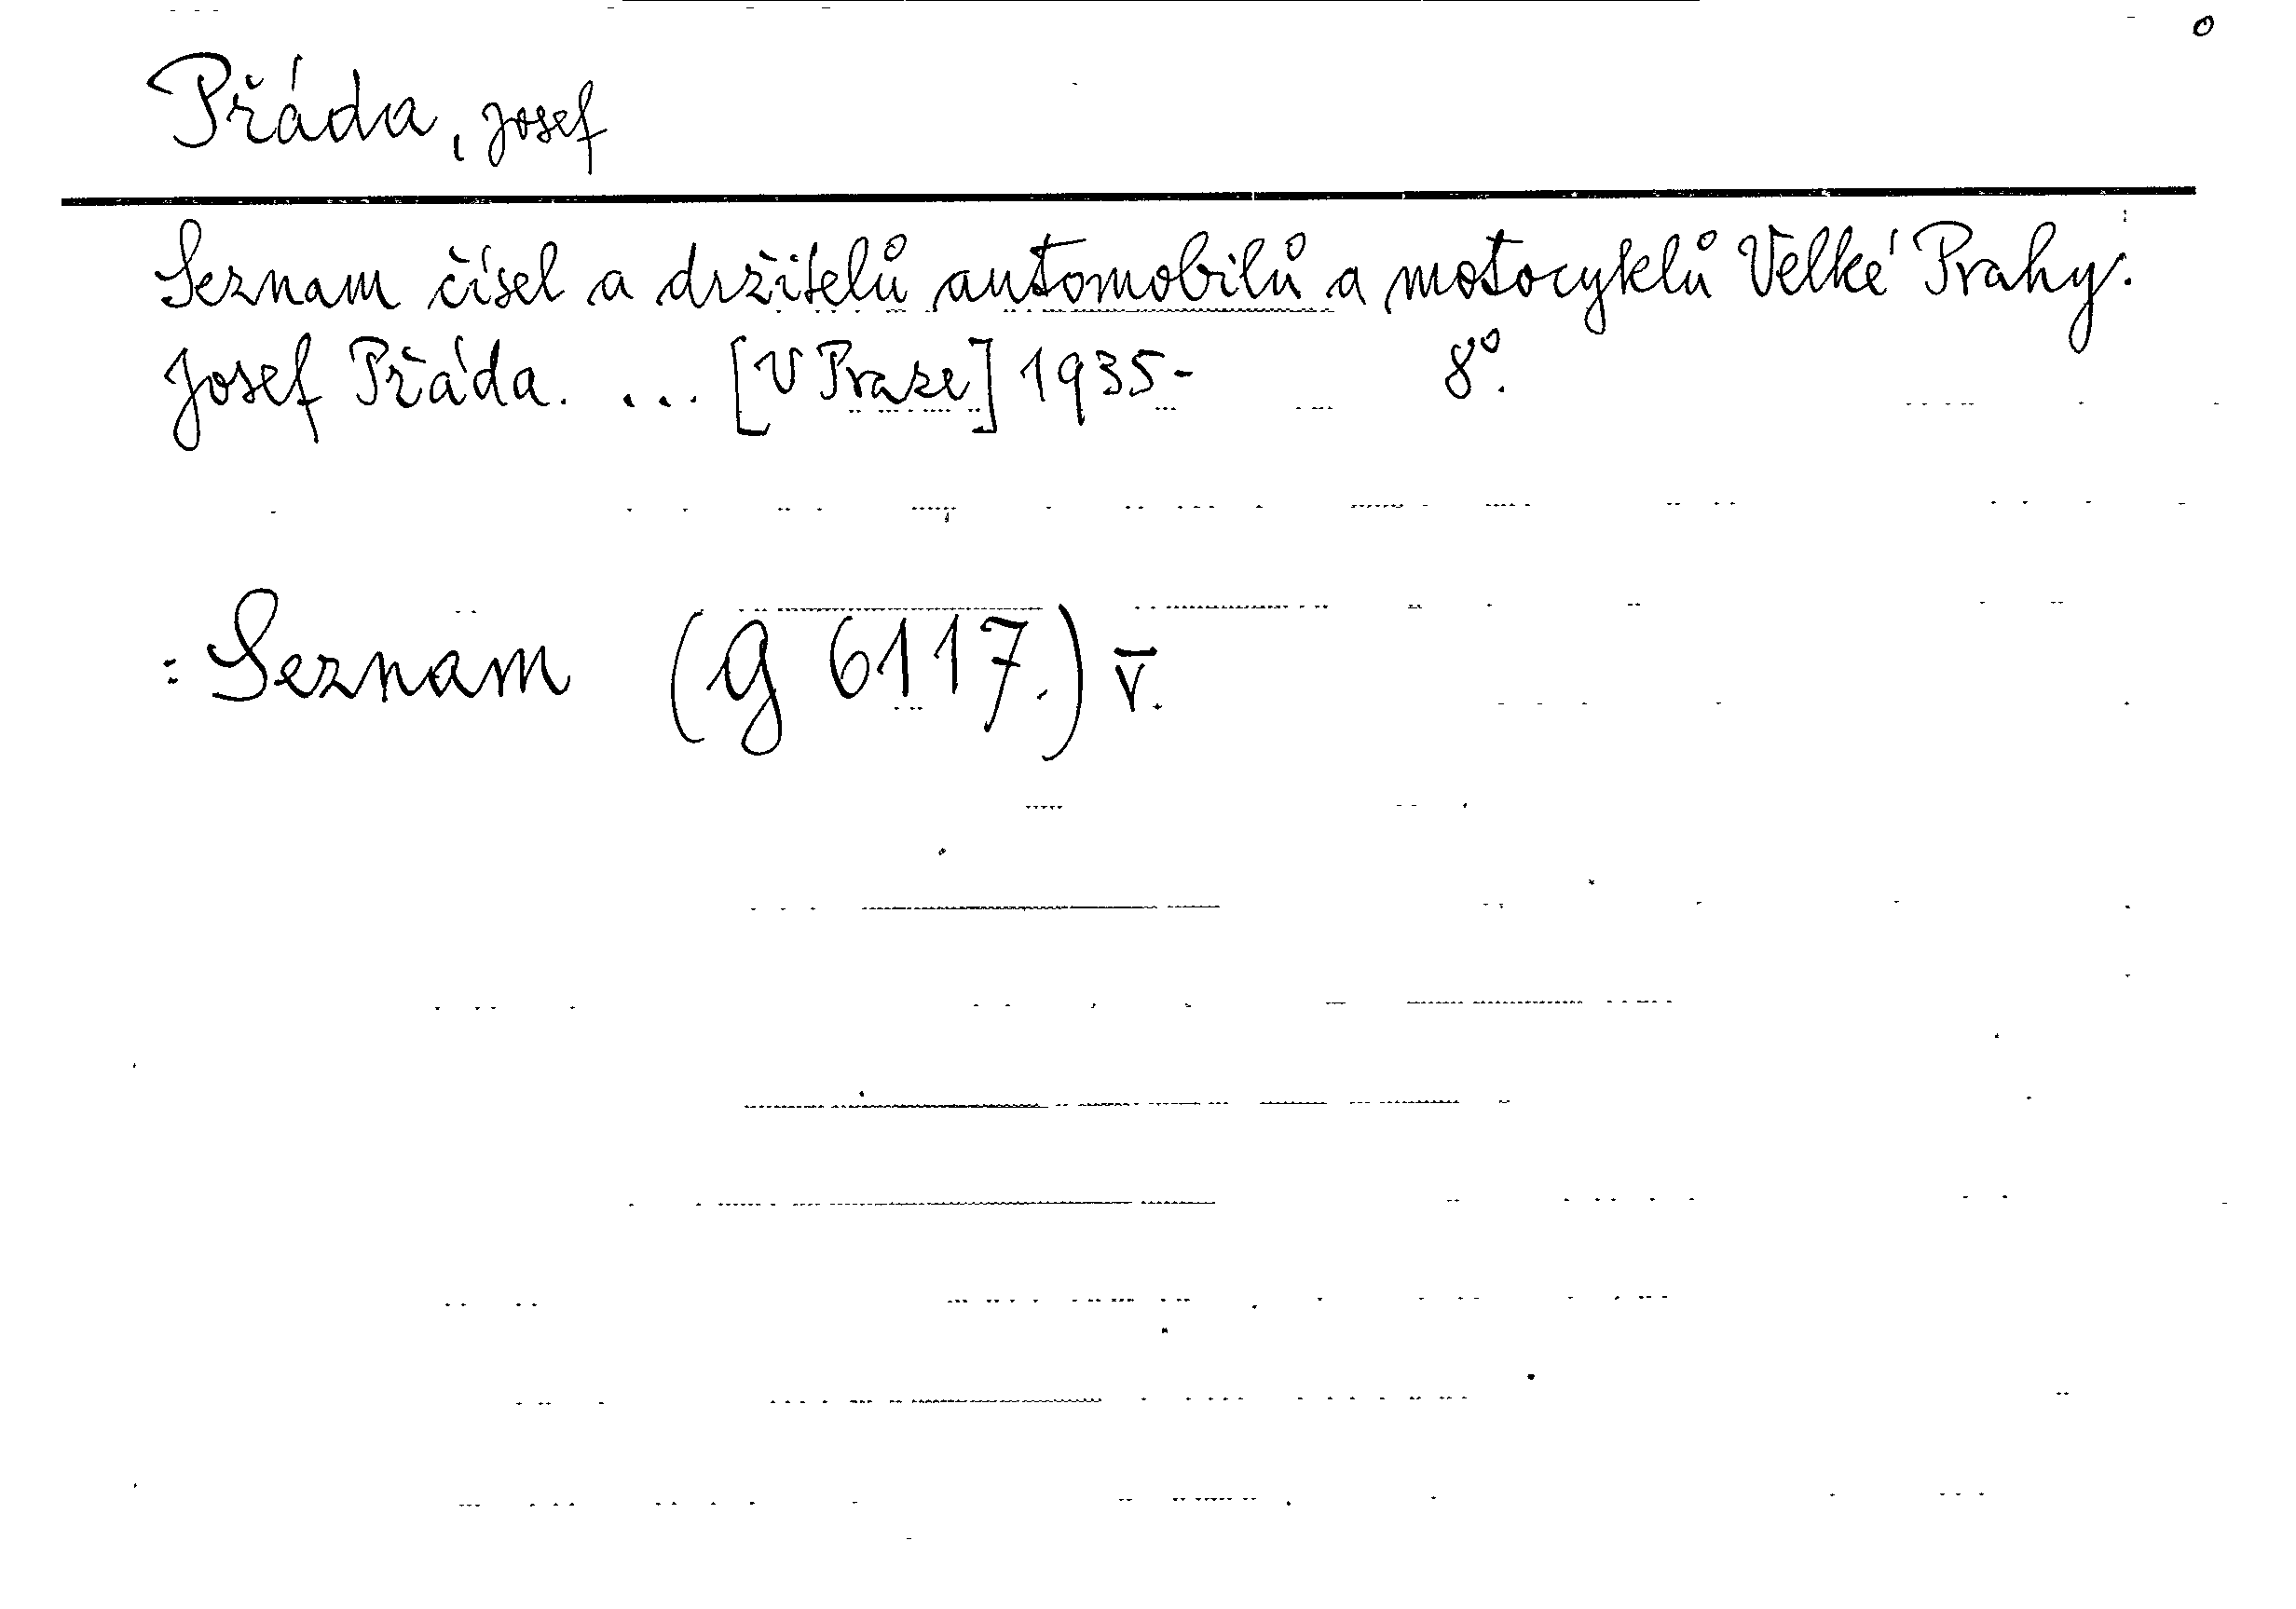 o
Přáda, Josef
Seznam čísel a držitelů automobilů a motocyklů Velké Prahy.
Josef Přáda. ... [V Praze] 1935- 8°.
: Seznam (G 6117.) v̄.